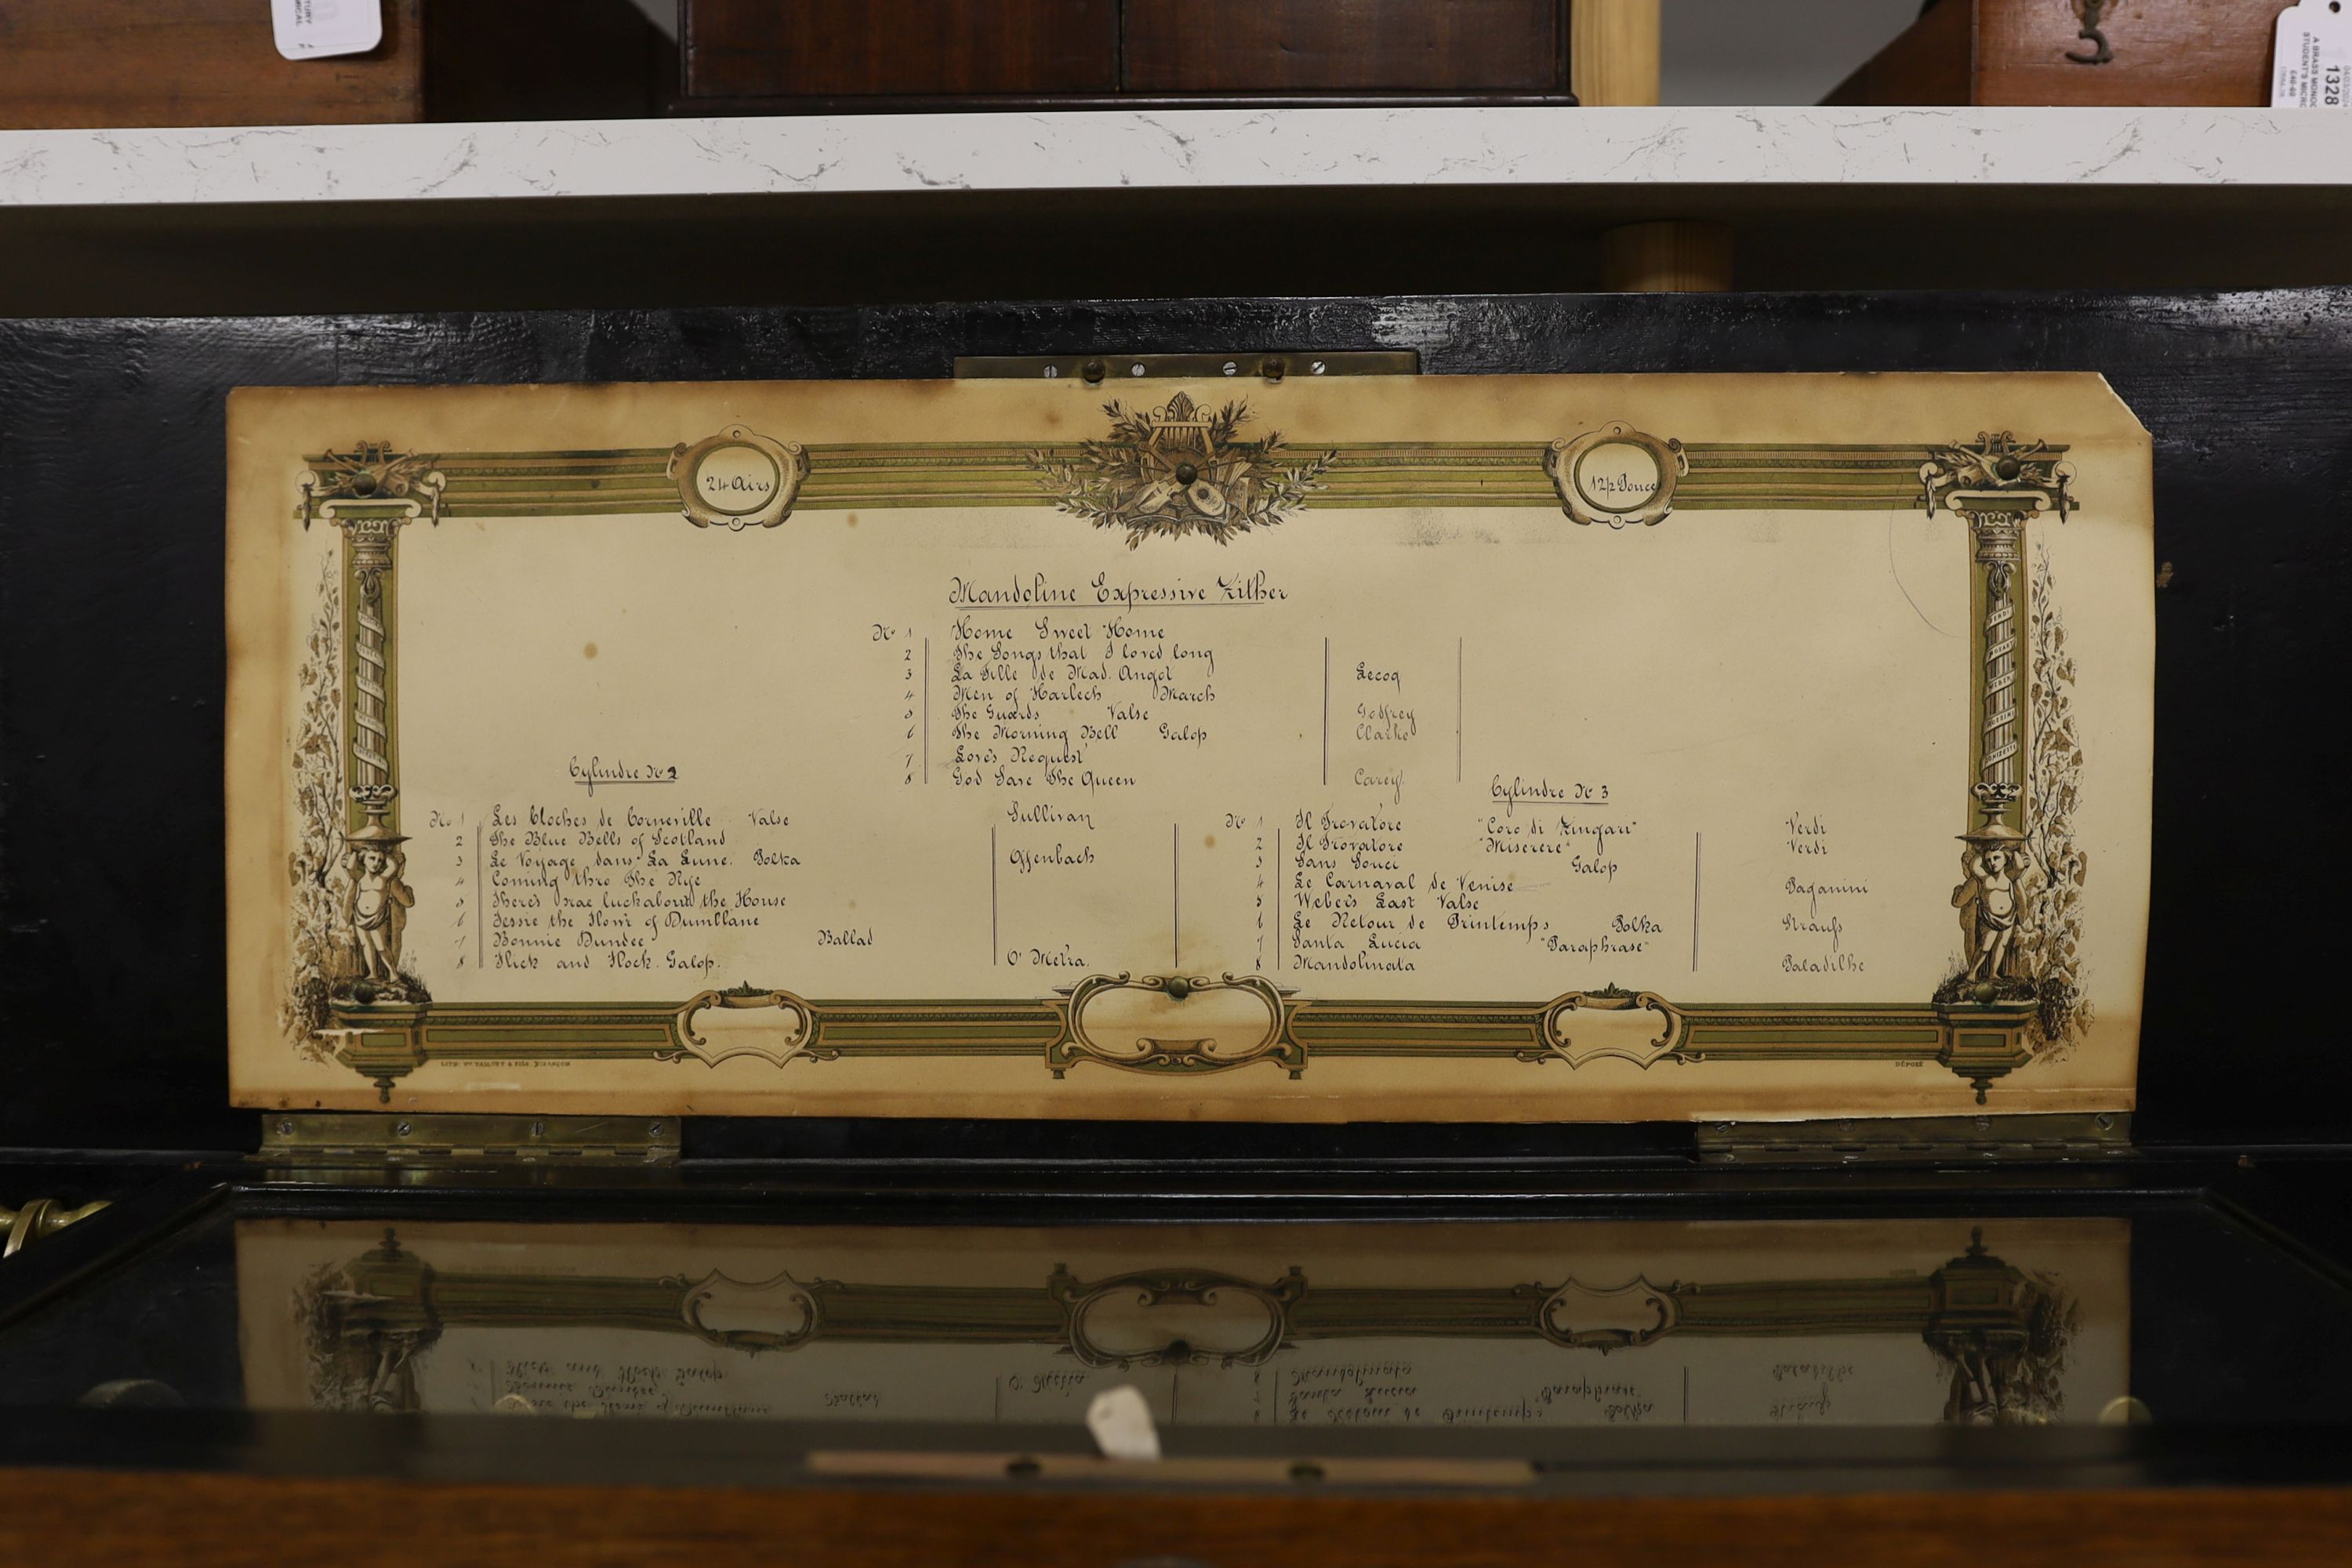 1328
A BRASS MONOC
STUDENT'S MICRO
£40-60
24 Airs
12½ Pouce
Mandoline Expressive Zither
No 1 Home Sweet Home
2 The Songs that I loved long
3 La Fille de Mad. Angot Lecoq
4 Men of Harlech March
5 The Guards Valse Godfrey
6 The Morning Bell Galop Clarke
7 Love's Request
8 God Save The Queen Carey
Cylindre No 2
No 1 Les Cloches de Corneville Valse Sullivan
2 The Blue Bells of Scotland
3 Le Voyage dans La Lune. Polka Offenbach
4 Coming thro The Rye
5 There's nae luck about the House
6 Jessie the Flow'r of Dumblane
7 Bonnie Dundee Ballad
8 Flick and Flock. Galop. O' Metra.
Cylindre No 3
No 1 Il Trovatore "Coro di Zingari" Verdi
2 Il Trovatore "Miserere" Verdi
3 Sans Souci Galop
4 Le Carnaval de Venise Paganini
5 Weber's Last Valse
6 Le Retour de Printemps Polka Strauss
7 Santa Lucia "Paraphrase"
8 Mandolinata Paladilhe
DÉPOSÉ